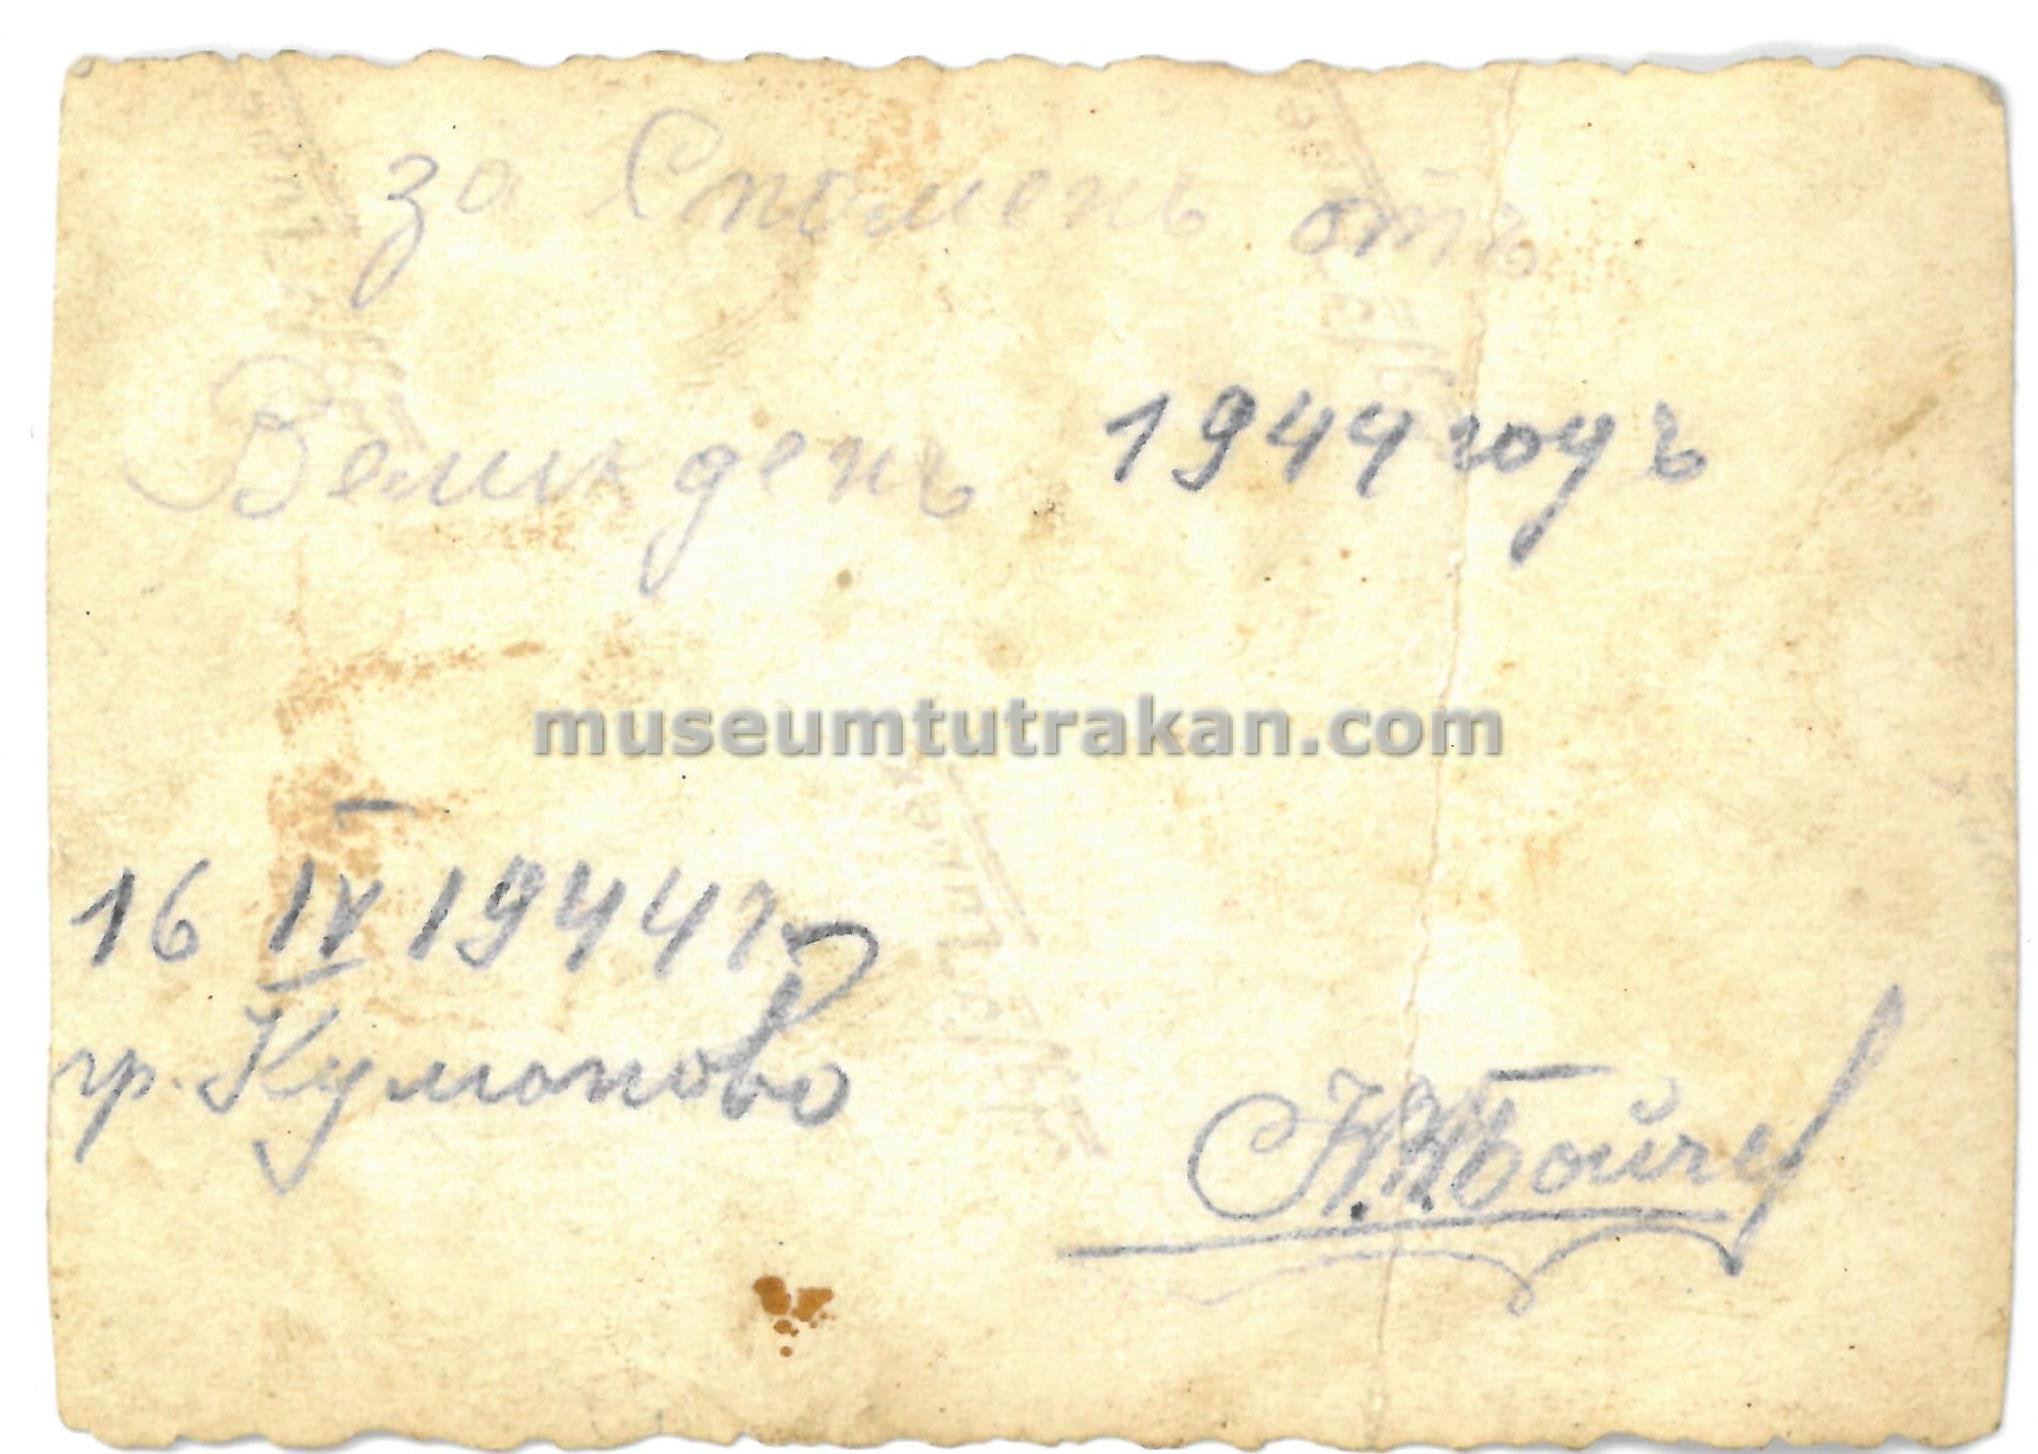 за Спомень отъ
Великденъ 1944 годъ
museumtutrakan.com
16 IV 1944 г.
гр. Куманово
Бойчев